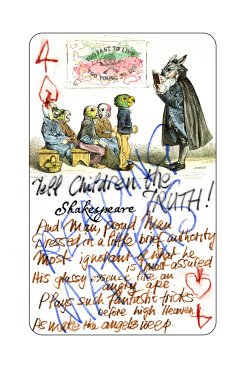 4
TOO FAST TO LIVE
TOO YOUNG TO DIE
Tell Children the
TRUTH!
Shakespeare
And Man, proud Man
Dressed in a little brief authority
Most ignorant of what he
is most assured
His glassy essence like an
angry ape
Plays such fantastic tricks
before high Heaven
As make the angels weep
4